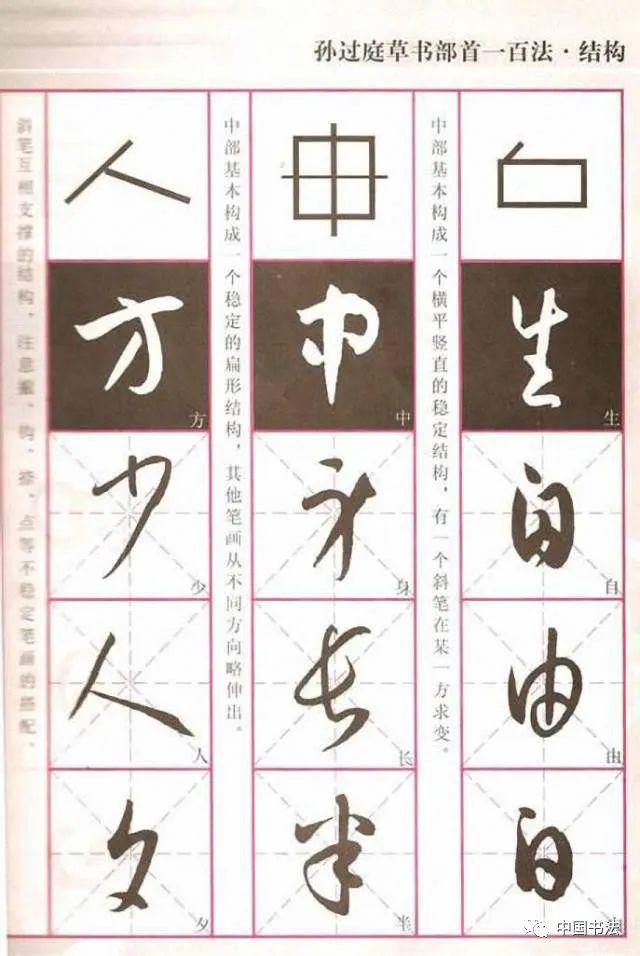 孙过庭草书部首一百法·结构
生
生
自
自
由
由
白
中部基本构成一个横平竖直的稳定结构，有一个斜笔在某一方求变。
中
中
身
身
长
长
半
半
中部基本构成一个稳定的扁形结构，其他笔画从不同方向略伸出。
方
方
少
少
人
人
夕
夕
斜笔互相支撑的结构，注意撇、钩、捺、点等不稳定笔画的搭配、
中国书法